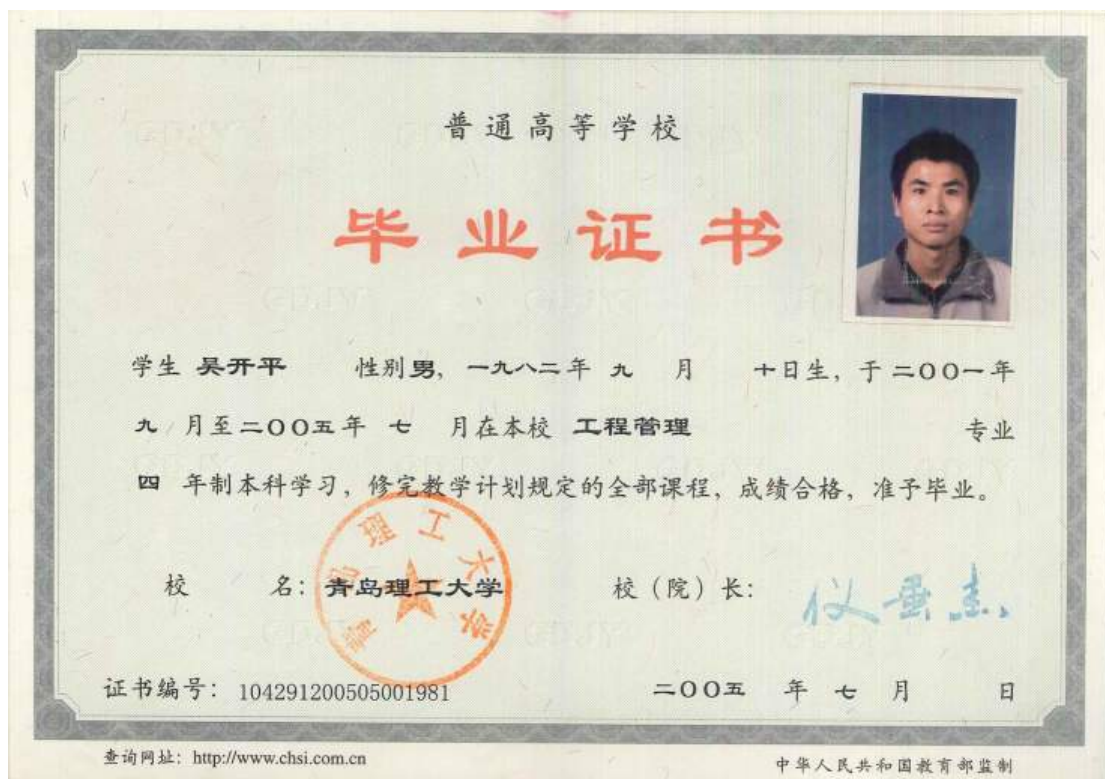 普通高等学校
毕业证书
学生 吴开平 性别 男, 一九八二年 九 月 十日生, 于二〇〇一年
九 月至二〇〇五年 七 月在本校 工程管理 专业
四 年制本科学习, 修完教学计划规定的全部课程, 成绩合格, 准予毕业。
校 名: 青岛理工大学 校（院）长: 仪垂杰
青岛理工大学
证书编号: 104291200505001981 二〇〇五 年 七 月 日
查询网址: http://www.chsi.com.cn 中华人民共和国教育部监制